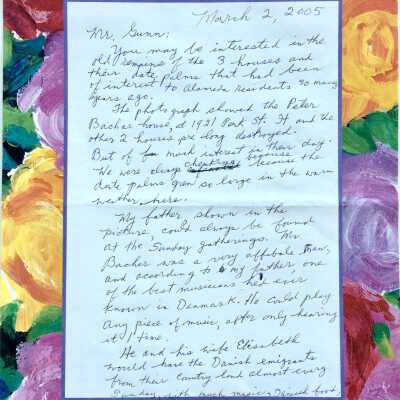 March 2, 2005
Mr. Gunn:
You may be interested in the
old remains of the 3 houses and
their date palms that had been
of interest to Alameda residents so many
years ago.
The photograph showed the Peter
Bacher house, at 1921 Park St. It and the
other 2 houses are long destroyed.
But of much interest in their day.
We were always because
date palms grew so large in the warm
weather here.
My father, shown in the
picture, could always be found
at the Sunday gatherings. Mr.
Bacher was a very affable man,
and according to my father, one
of the best musicians he'd ever
known in Denmark. He could play
any piece of music, after only hearing
it 1 time.
He and his wife Elizabeth
would have the Danish emigrants
from their country land almost every
Sunday, with much music, Danish food,